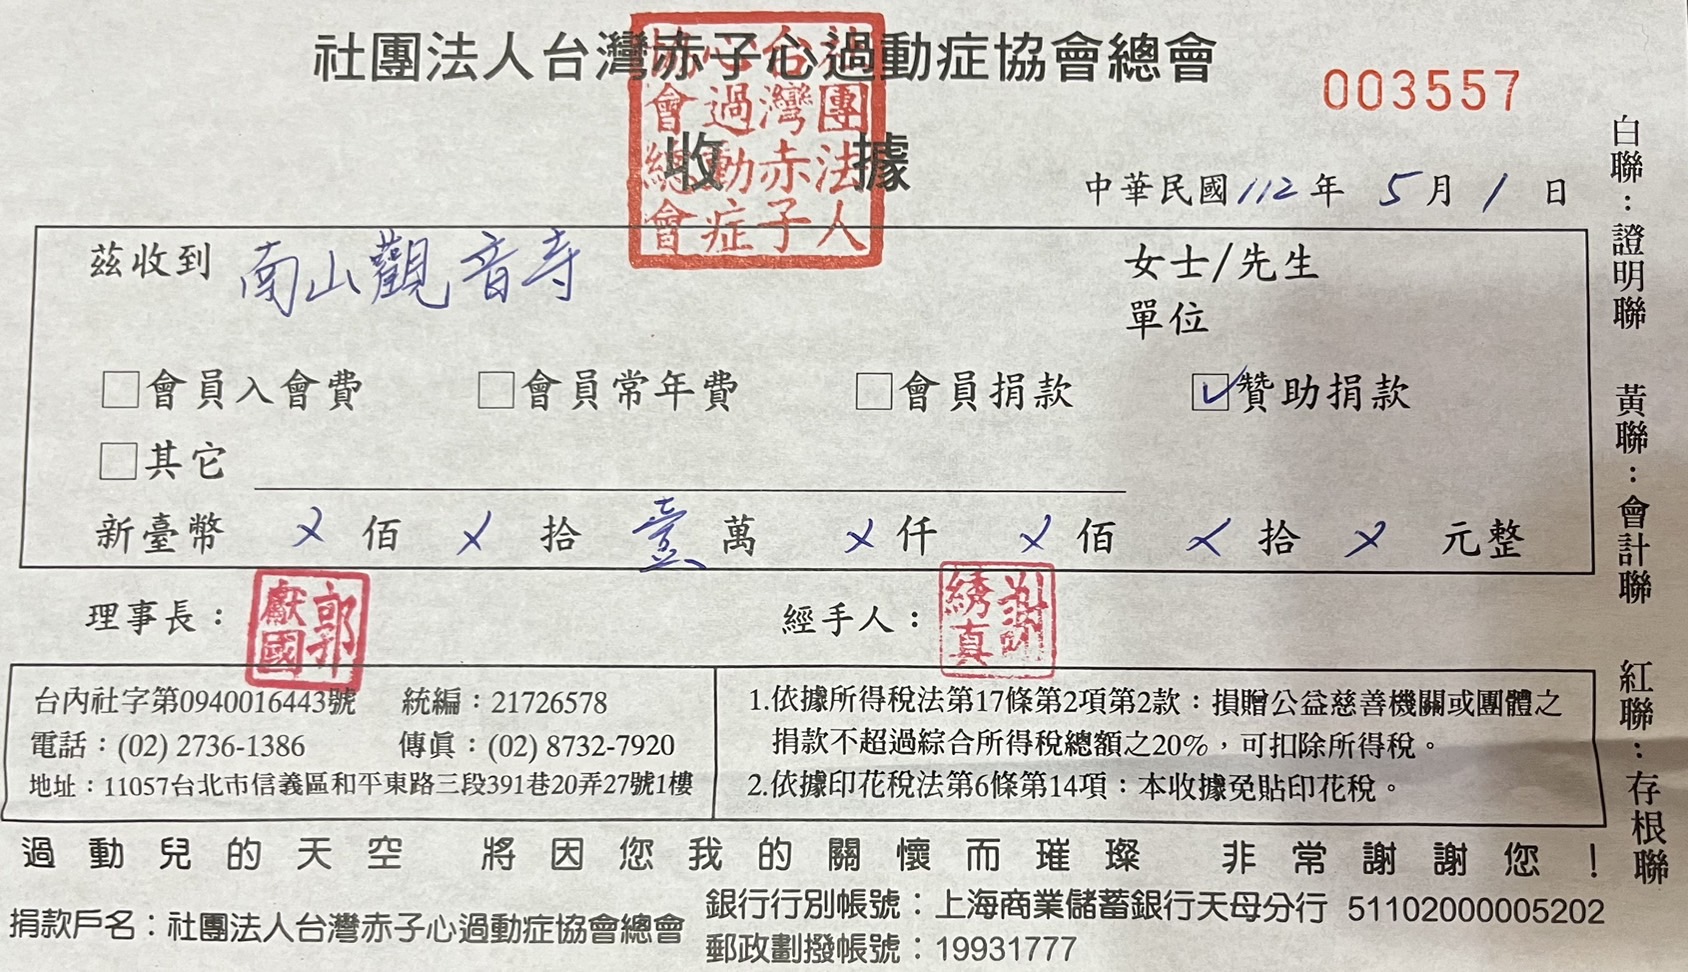 社團法人台灣赤子心過動症協會總會
003557
收據
社團法人台灣赤子心過動症協會總會
中華民國112年 5月 1日
茲收到 南山觀音寺 女士/先生
單位
□會員入會費 □會員常年費 □會員捐款 ☑贊助捐款
□其它
新臺幣 ㄨ 佰 ㄨ 拾 壹 萬 ㄨ 仟 ㄨ 佰 ㄨ 拾 ㄨ 元整
理事長： 郭獻國 經手人： 謝綉真
台內社字第0940016443號 統編：21726578
電話：(02) 2736-1386 傳真：(02) 8732-7920
地址：11057台北市信義區和平東路三段391巷20弄27號1樓
1.依據所得稅法第17條第2項第2款：損贈公益慈善機關或團體之
捐款不超過綜合所得稅總額之20%，可扣除所得稅。
2.依據印花稅法第6條第14項：本收據免貼印花稅。
過動兒的天空 將因您我的關懷而璀璨 非常謝謝您！
捐款戶名：社團法人台灣赤子心過動症協會總會
銀行行別帳號：上海商業儲蓄銀行天母分行 51102000005202
郵政劃撥帳號：19931777
白聯：證明聯 黃聯：會計聯 紅聯：存根聯